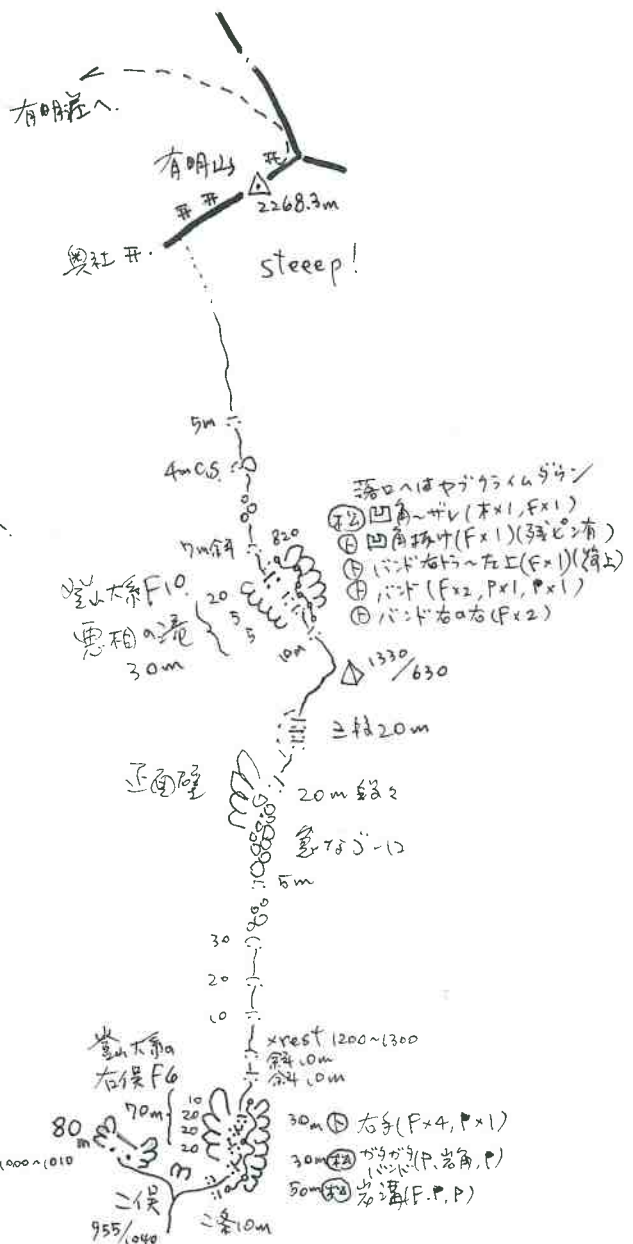 有明荘へ.
有明山
2268.3m
奥社
steeep!
5m
4mC.S.
落口へはヤブクライムダウン
松 凹角〜ザレ(木×1, F×1)
ト 凹角抜け(F×1)(残ピン有)
ト バンド右トラ〜左上(F×1)
ト バンド(F×2, P×1, P×1)
ト バンド右の右(F×2)
7m斜
820
登山大系F10
悪相の滝
30m
20
5
5
10m
1330/630
三段20m
正面壁
20m段々
急なゴーロ
5m
30
20
10
rest 1200~1300
斜10m
斜10m
登山大系の
右俣F6
70m
10
20
20
20
80m
1000~1010
二俣
955/1040
二条10m
30m ト 右手(F×4, P×1)
30m 松 ガタガタバンド(P, 岩角, P)
50m 松 岩溝(F.P,P)